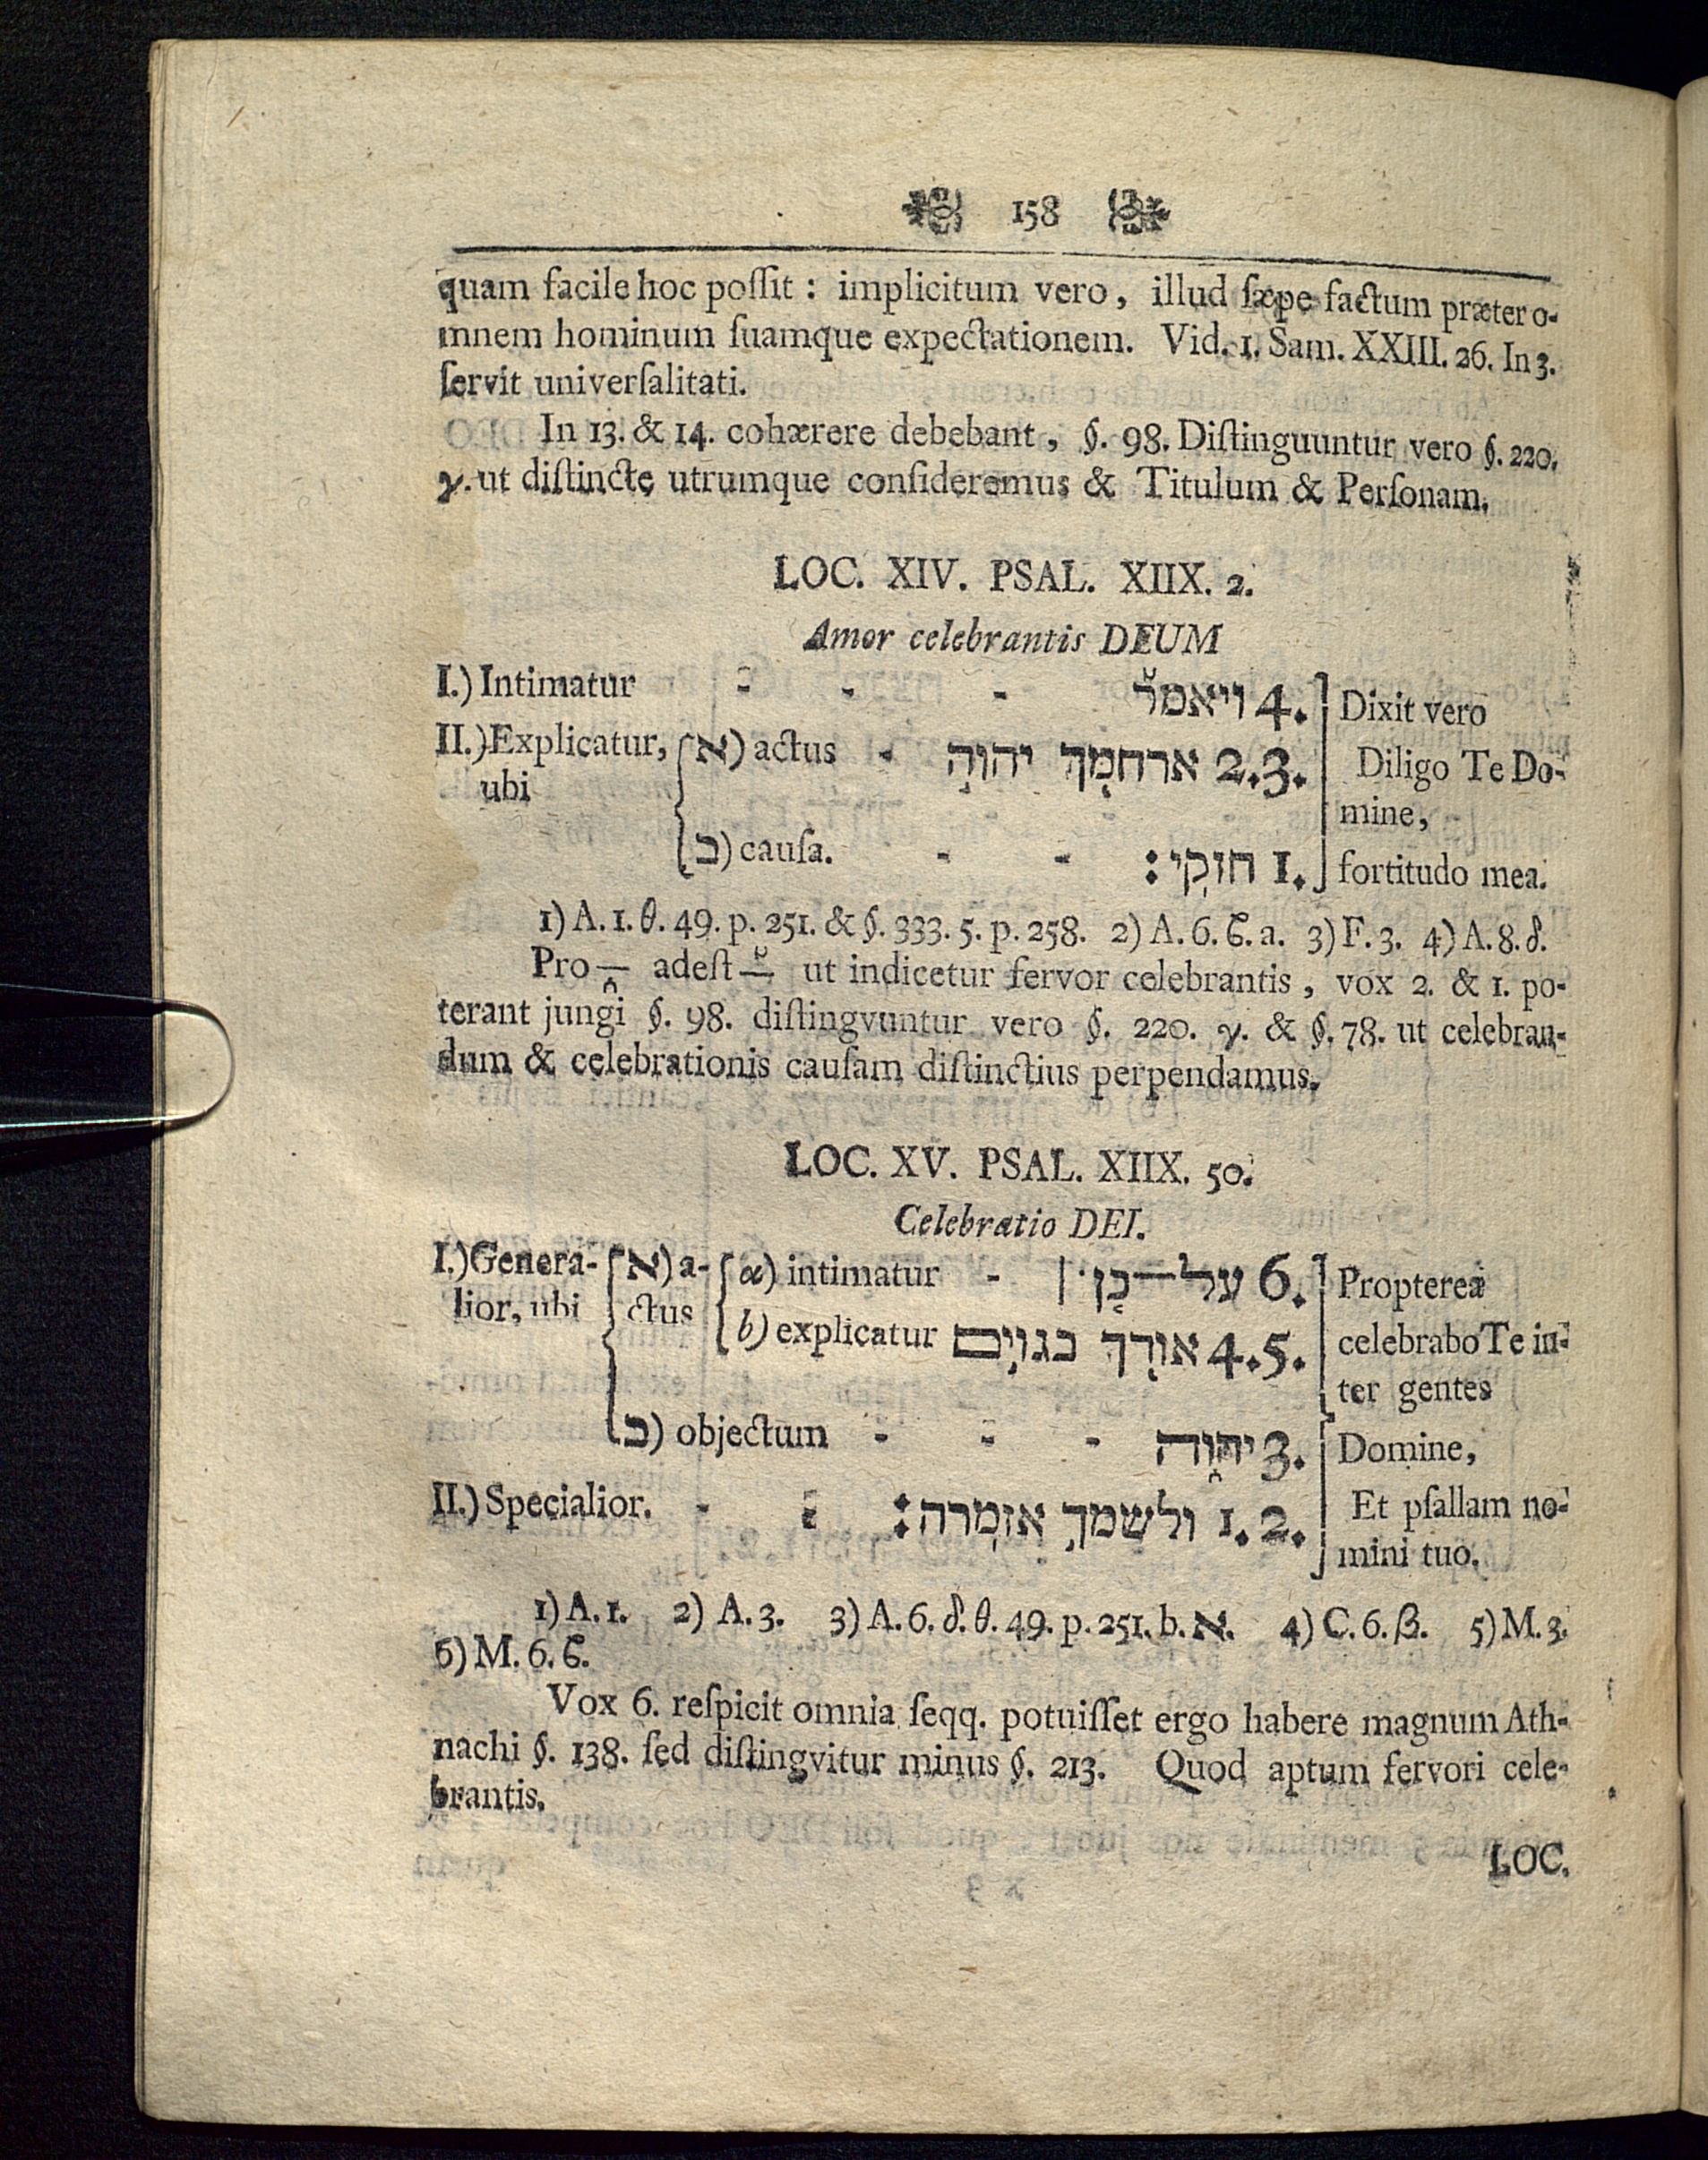 158
quam facile hoc poſſit : implicitum vero, illud ſæpe factum præter o-
mnem hominum ſuamque expectationem. Vid. 1. Sam. XXIII. 26. In 3.
ſervit univerſalitati.
In 13. & 14. cohærere debebant, §. 98. Diſtinguuntur vero §. 220.
γ. ut diſtincte utrumque conſideremus & Titulum & Perſonam.
LOC. XIV. PSAL. XIIX. 2.
Amor celebrantis DEUM
I.) Intimatur - - - ויאמר֘ 4. Dixit vero
II.) Explicatur, א) actus - ארחמ֖ך יהוה֣ 2.3. Diligo Te Do-
ubi mine,
ב) cauſa. - - חזק֖י : 1. fortitudo mea.
1) A. 1. θ. 49. p. 251. & §. 333. 5. p. 258. 2) A. 6. ϐ. a. 3) F. 3. 4) A. 8. δ.
Pro adeſt ut indicetur fervor celebrantis, vox 2. & 1. po-
terant jungi §. 98. diſtingvuntur vero §. 220. γ. & §. 78. ut celebran-
dum & celebrationis cauſam diſtinctius perpendamus.
LOC. XV. PSAL. XIIX. 50.
Celebratio DEI.
I.) Genera- א) a- a) intimatur - על־כן | 6. Propterea
lior, ubi ctus b) explicatur אודך בגוים 4.5. celebrabo Te in-
ter gentes
ב) objectum - - - יהוה 3. Domine,
II.) Specialior. - - ולשמך אזמרה : 1. 2. Et pſallam no-
mini tuo.
1) A. 1. 2) A. 3. 3) A. 6. δ. θ. 49. p. 251. b. א. 4) C. 6. β. 5) M. 3.
6) M. 6. ϐ.
Vox 6. reſpicit omnia ſeqq. potuiſſet ergo habere magnum Ath-
nachi §. 138. ſed diſtingvitur minus §. 213. Quod aptum fervori cele-
brantis.
LOC.